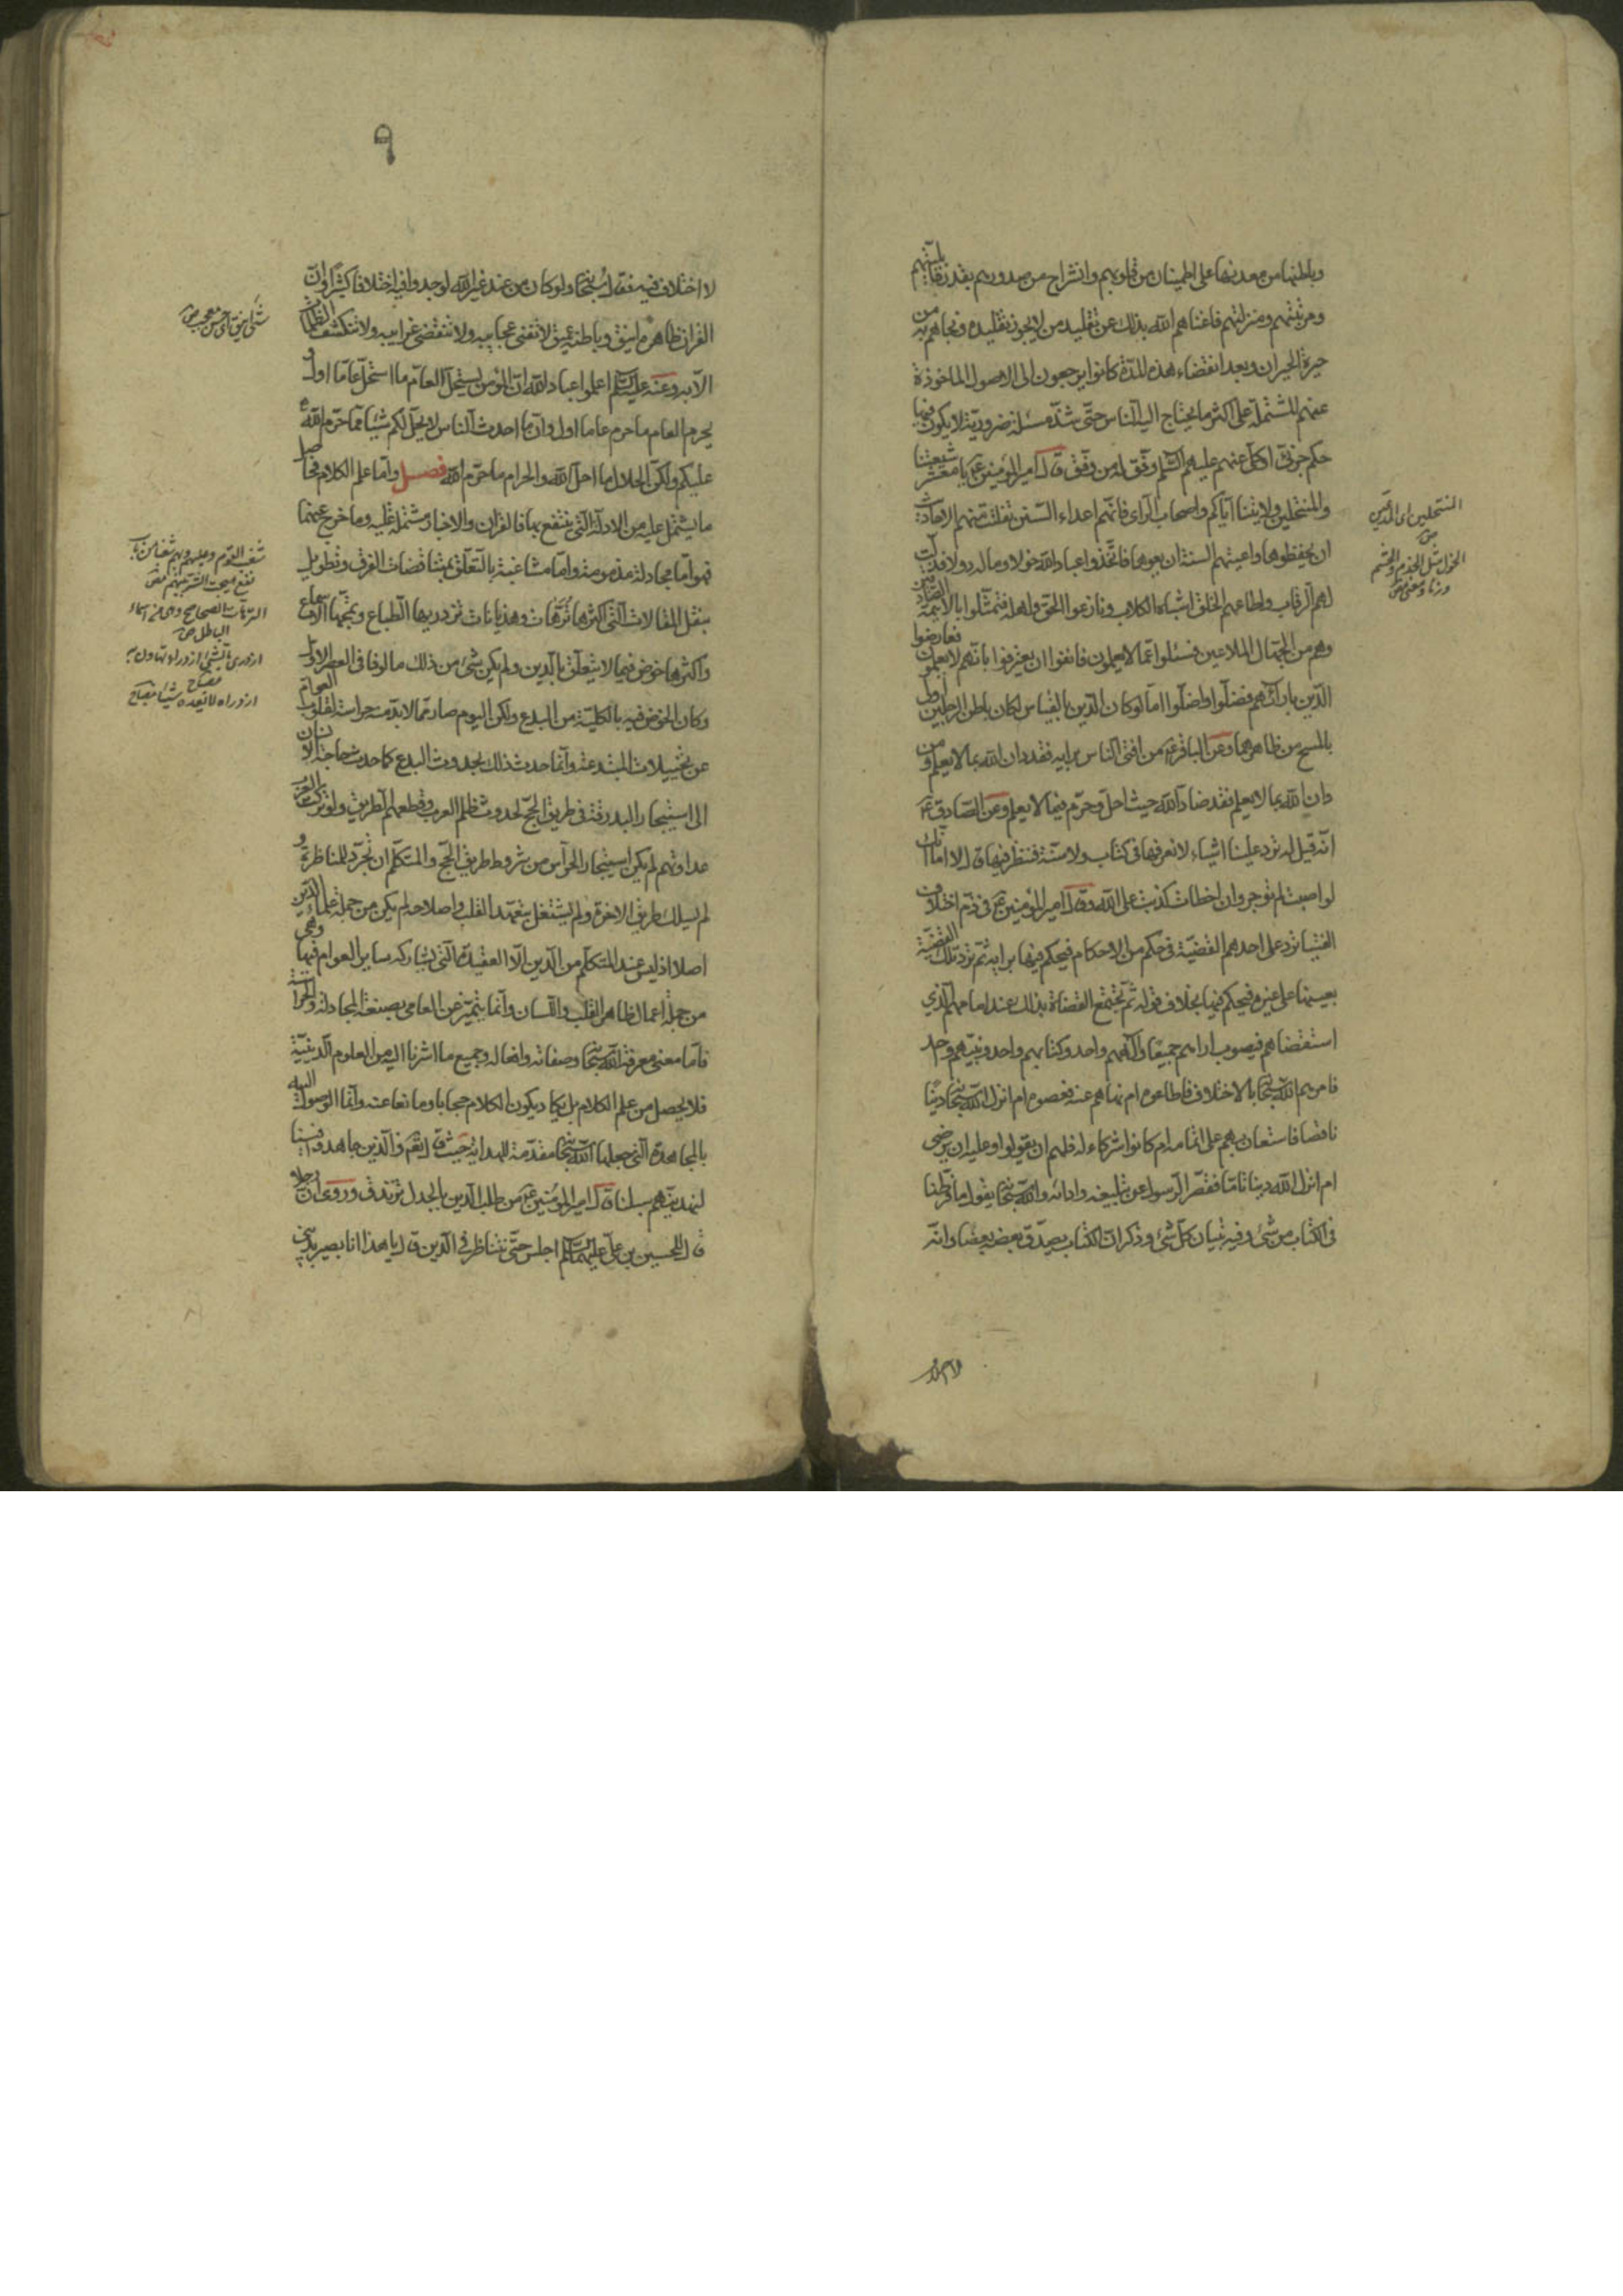 وباطنها من معدنها على اطمينان من قلوبهم وانشراح من صدورهم بقدر قابليتهم
ومرتبتهم ومنزلتهم فاغناهم الله بذلك عن تقليد من لا يجوز تقليده ونجاهم به من
حيرة الحيران وبعد انقضاء هذه المدّة كانوا يرجعون الى الاصول الماخوذة
عنهم المشتملة على اكثر ما يحتاج اليه الناس حتّى شذّ مسئلة ضروريّة لا يكون فيها
حكم جزئى او كلّى عنهم عليهم السّلم وفّق له من وفّق قال امير المؤمنين ع يا معشر شيعتنا
والمنتحلين ولايتنا ايّاكم واصحاب الراى فانّهم اعداء السّنن تفلتت منهم الاحاديث
ان يحفظوها واعيتهم السنة ان يعوها فاتّخذوا عباد الله خولا وماله دولا فذلّت
لهم الرقاب واطاعهم الخلق اشباه الكلاب ونازعوا الحق واهله فتمثّلوا بالائمة الصّادقين
وهم من الجهّال الملاعين فسئلوا عمّا لا يعلمون فانفوا ان يعترفوا بانّهم لا يعلمون فعارضوا
الدّين بارائهم فضلّوا واضلّوا اما لو كان الدّين بالقياس لكان باطن الرجلين اولى
بالمسح من ظاهرهما وعن الباقر ع من افتى الناس برايه فقد دان الله بما لا يعلم ومن
دان الله بما لا يعلم فقد ضادّ الله حيث احلّ وحرّم فيما لا يعلم وعن الصّادق ع
انّه قيل له ترد علينا اشياء لا نعرفها فى كتاب ولا سنّة فننظر فيها قال لا اما انّك
لو اصبت لم توجر وان اخطات كذبت على الله وقال امير المؤمنين ع فى ذمّ اختلاف
الفتيا ترد على احدهم القضيّة فى حكم من الاحكام فيحكم فيها برايه ثم ترد تلك القضيّة
بعينها على غيره فيحكم فيها بخلاف قوله ثم يجتمع القضاة بذلك عند امامهم الّذى
استقضاهم فيصوب اراءهم جميعًا والههم واحد وكتابهم واحد ونبيّهم واحد
فامرهم الله سبحانه بالاختلاف فاطاعوه ام نهاهم عنه فعصوه ام انزل الله سبحانه دينًا
ناقصا فاستعان بهم على اتمامه ام كانوا شركاء له فلهم ان يقولوا وعليه ان يرضى
ام انزل الله دينا تامّا فقصّر الرّسول عن تبليغه وادائه والله سبحانه يقول ما فرّطنا
فى الكتاب من شىء وفيه تبيان كلّ شىء وذكر انّ الكتاب يصدّق بعضه بعضا وانّه
المنتحلين اى المدّعين
الخول مثل الخدم والحشم
وزنا ومعنى ص
لا اختلاف فيه فقال سبحانه ولو كان من عند غير الله لوجدوا فيه اختلافا كثيرًا وانّ
القران ظاهره انيق وباطنه عميق لا تفنى عجايبه ولا تنقضى غرايبه ولا تنكشف الظلمات
الّا به وعنه عليه السّلم اعلموا عباد الله انّ المؤمن يستحلّ العام ما استحلّ عامًا اول و
يحرم العام ما حرم عاما اول وانّ ما احدث الناس لا يحلّ لكم شيئا ممّا حرّم الله
عليكم ولكنّ الحلال ما احل الله والحرام ما حرّم الله فصل وامّا علم الكلام فحاصل
ما يشتمل عليه من الادلّة الّتى ينتفع بها فالقران والاخبار مشتملة عليه وما خرج عنهما
فهو امّا مجادلة مذمومة وامّا مشاغبة بالتعلّق بمناقضات الفرق وتطويل
بنقل المقالات الّتى اكثرها تُرّهات وهذيانات تزدريها الطباع وتمجّها الاسماع
واكثرها خوض فيما لا يتعلّق بالدين ولم يكن شىء من ذلك مالوفا فى العصر الاول
وكان الخوض فيه بالكليّة من البدع ولكن اليوم صار ممّا لا بدّ منه حراسة لقلوب العوام
عن تخييلات المبتدعة وانّما حدث ذلك بحدوث البدع كما حدث حاجة الانسان
الى استيجار البدرقة فى طريق الحجّ لحدوث ظلم العرب وقطعهم الطريق ولو ترك العرب
عداوتهم لم يكن استيجار الحراس من شروط طريق الحجّ والمتكلّم ان تجرّد للمناظرة و
لم يسلك طريق الاخرة ولم يشتغل بتعهّد القلب واصلاحه لم يكن من جملة علماء الدّين
اصلا اذ ليس عند المتكلّم من الدّين الّا العقيدة الّتى يشاركه ساير العوام فيها وهى
من جملة اعمال ظاهر القلب واللسان وانّما يتميّز عن العامى بصنعة المجادلة والحراسة
فامّا معنى معرفة الله سبحانه وصفاته وافعاله وجميع ما اشرنا اليه من العلوم الدّينيّة
فلا يحصل من علم الكلام بل يكاد يكون الكلام حجابا ومانعا عنه وانّما الوصول اليه
بالمجاهدة الّتى جعلها الله سبحانه مقدّمة للهداية حيث قال تعالى والّذين جاهدوا فينا
لنهدينّهم سبلنا قال امير المؤمنين ع من طلب الدّين بالجدل تزندق وروى انّ رجلا
قال للحسين بن علىّ عليهما السّلم اجلس حتّى نتناظر فى الدّين قال يا هذا انا بصير بدينى